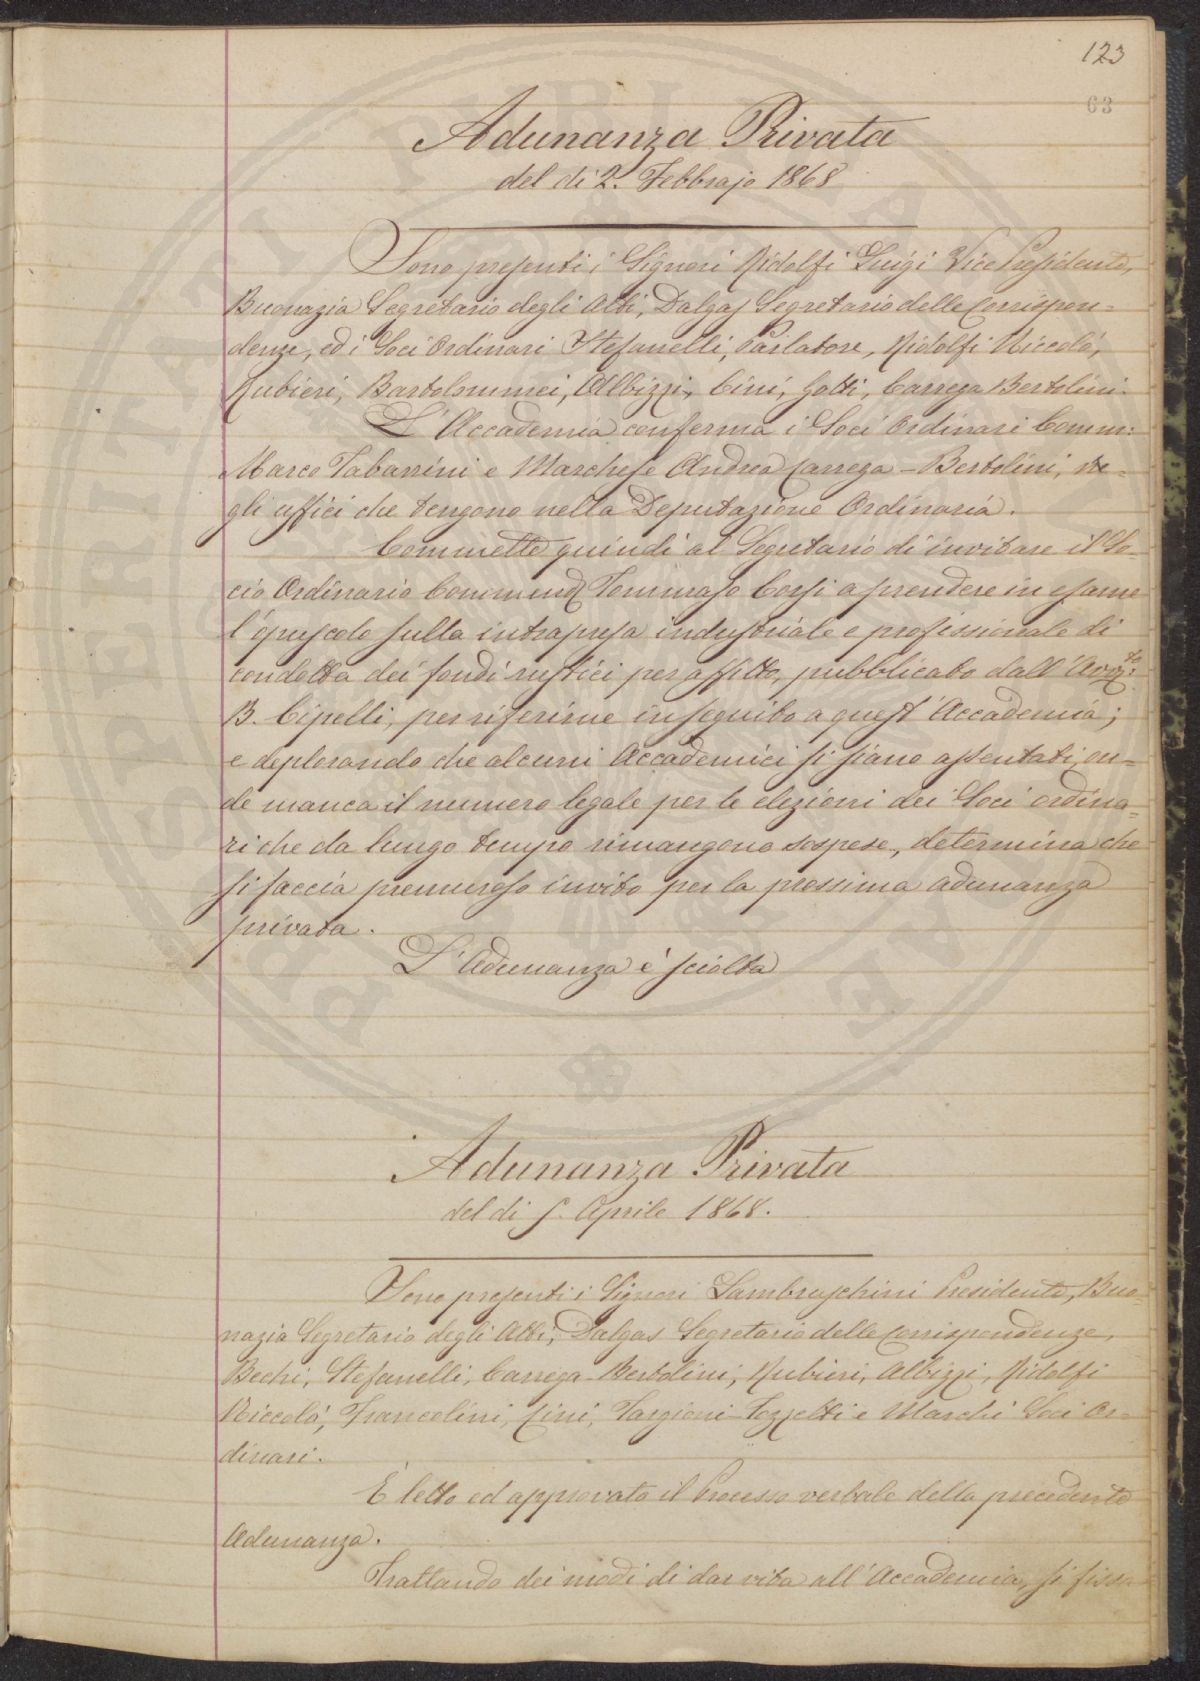 123
63
Adunanza Privata
del dì 2. Febbrajo 1868
Sono presenti i Signori Ridolfi Luigi Vice Presidente,
Buonazia Segretario degli Atti, Dalgas Segretario delle Corrispon=
denze, ed i Soci Ordinari Stefanelli, Parlatore, Ridolfi Niccolò,
Rubieri, Bartolommei, Albizzi, Cini, Gotti, Carrega Bertolini.
L'Accademia conferma i Soci Ordinari Comm:
Marco Tabarrini e Marchese Andrea Carrega-Bertolini, ne=
gli ufici che tengono nella Deputazione Ordinaria.
Commette quindi al Segretario di invitare il So=
cio Ordinario Commend Tommaso Corsi a prendere in esame
l'opuscolo sulla intrapresa industriale e professionale di
condotta dei fondi rustici per affitto, pubblicato dall'Avv:to
B. Cipelli, per riferirne in seguito a quest'Accademia;
e deplorando che alcuni Accademici si siano assentati, on=
de manca il numero legale per le elezioni dei Soci ordina=
ri che da lungo tempo rimangono sospese, determina che
si faccia premuroso invito per la prossima adunanza
privata.
L'Adunanza è sciolta
Adunanza Privata
del dì 5. Aprile 1868.
Sono presenti i Signori Lambruschini Presidente, Buo=
nazia Segretario degli Atti, Dalgas Segretario delle Corrispondenze,
Bechi, Stefanelli, Carrega-Bertolini, Rubieri, Albizzi, Ridolfi
Niccolò, Francolini, Cini, Targioni-Tozzetti e Marchi Soci Or=
dinari.
È letto ed approvato il Processo verbale della precedente
Adunanza.
Trattando dei modi di dar vita all'Accademia, si fissa